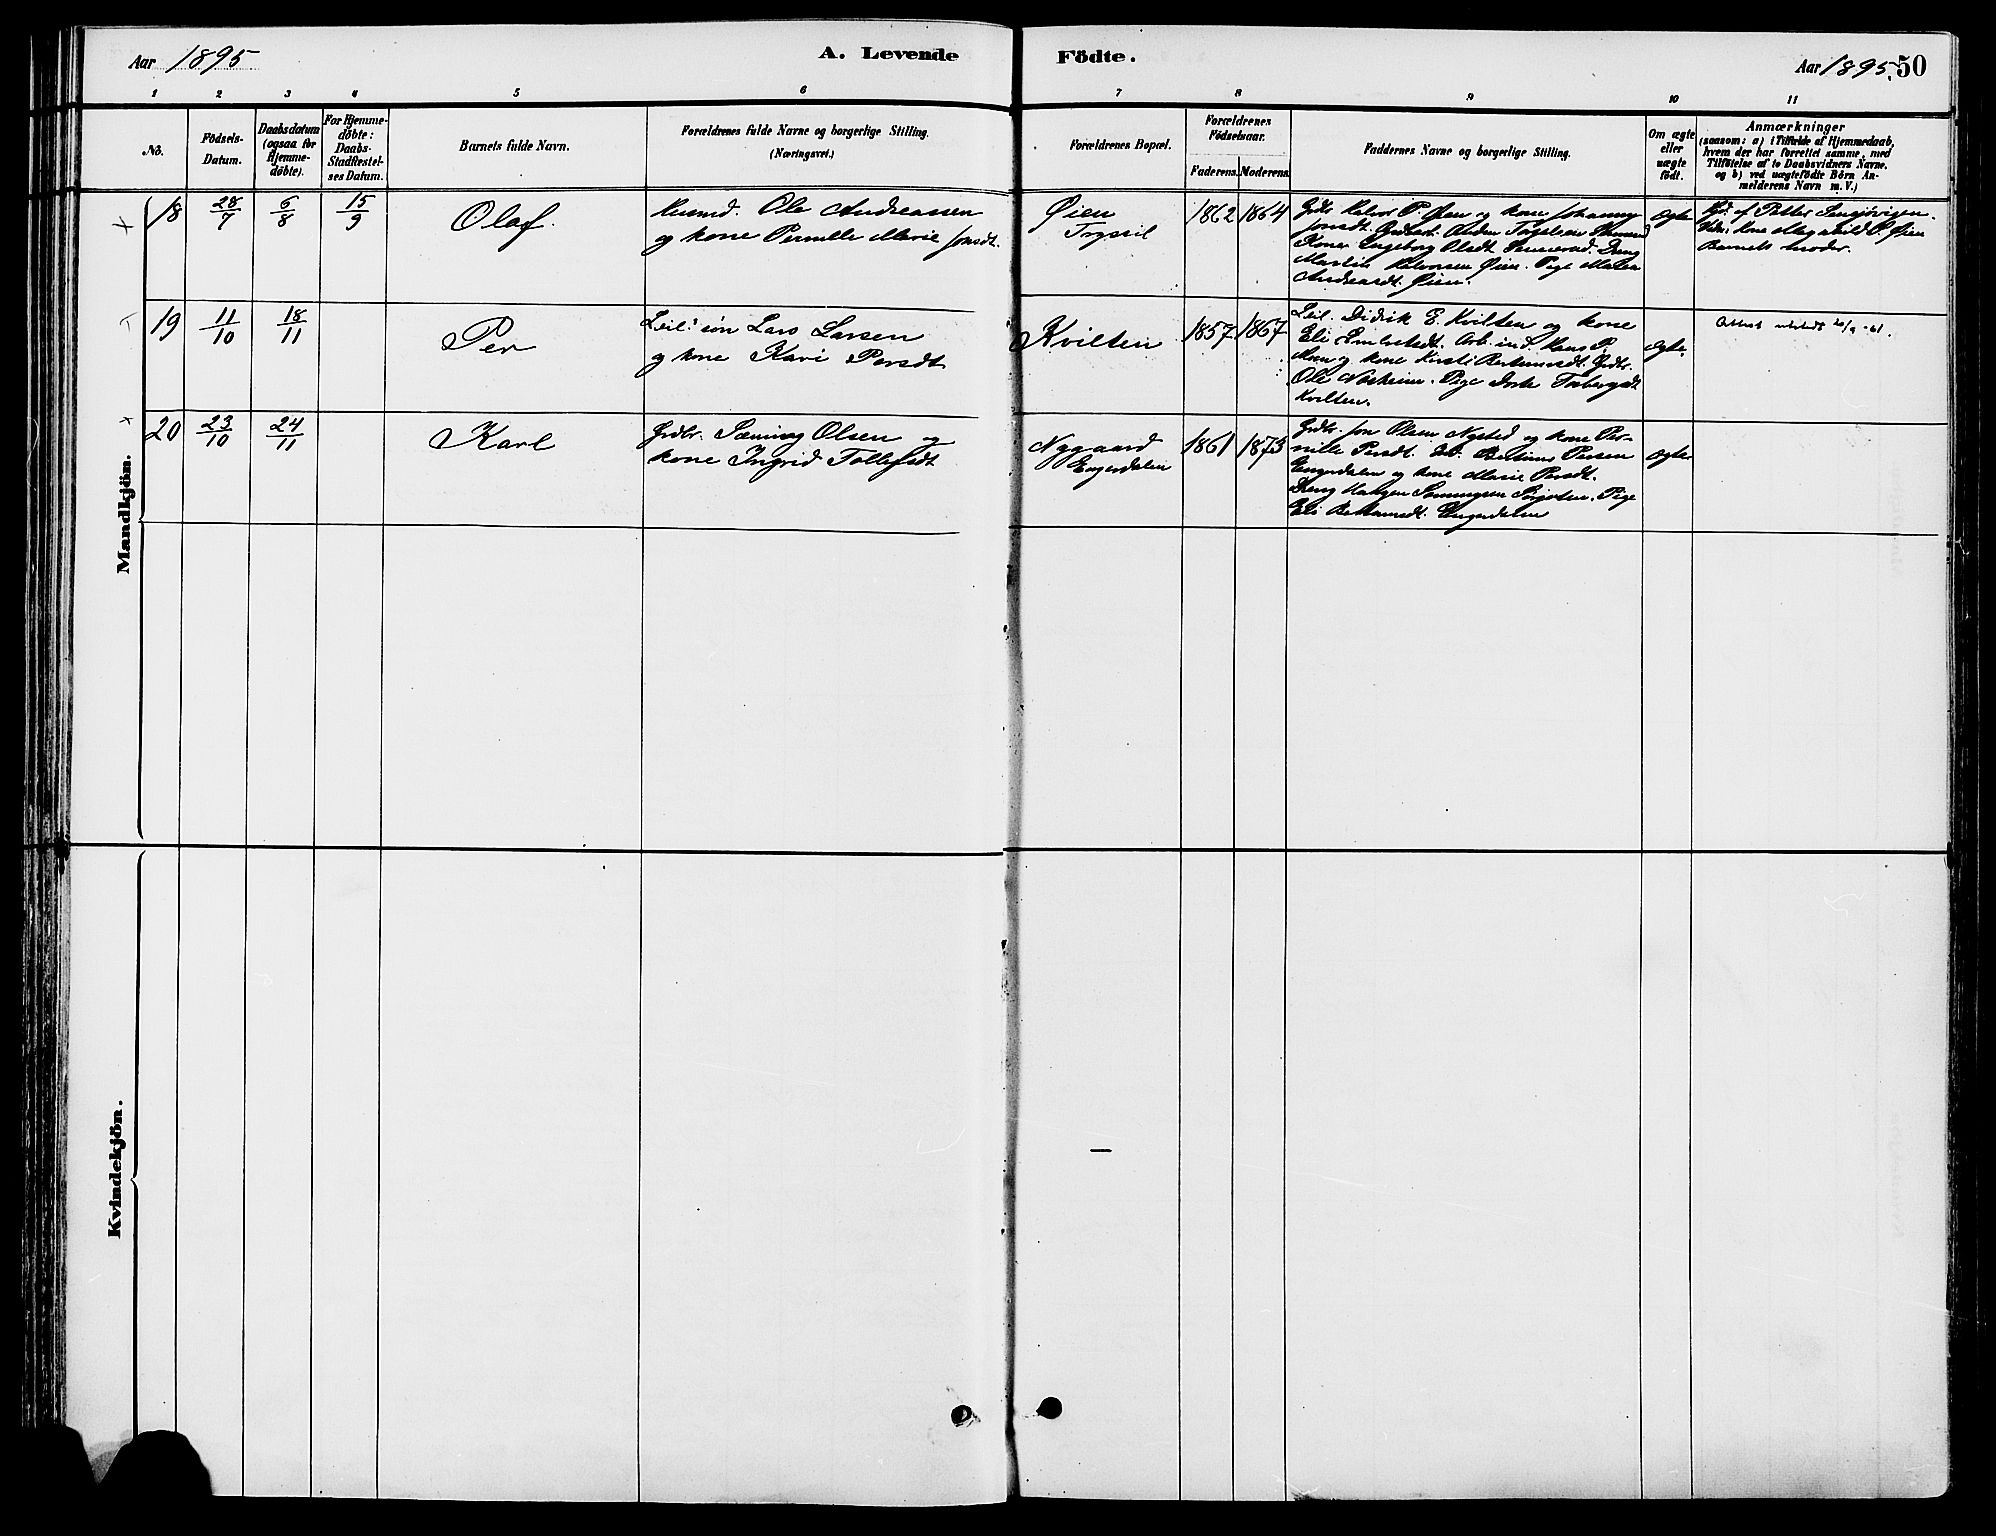 Aar 1895
A. Levende
Födte.
Aar 1895. 50
1 2 3 4 5 6 7 8 9 10 11
No.
Födsels-
Datum.
Daabsdatum
(ogsaa for
Hjemme-
døbte).
For Hjemme-
døbte:
Daabs-
Stadfæstel-
ses Datum.
Barnets fulde Navn.
Forældrenes fulde Navne og borgerlige Stilling.
(Næringsvei.)
Forældrenes Bopæl.
Forældrenes
Födselsaar.
Faderens. Moderens.
Faddernes Navne og borgerlige Stilling.
Om ægte
eller
uægte
født.
Anmærkninger
(saasom: a) i Tilfælde af Hjemmedaab,
hvem der har forrettet samme, med
Tilføielse af to Daabsvidners Navne,
og b) ved uægtefödte Börn An-
melderens Navn m. V.)
Mandkjön.
18 28/7 6/8 15/9 Olaf.
Husmd. Ole Andreassen
og kone Pernille Marie Jonsdt.
Øien
Trysil
1862 1864
Grdbr. Halvor P. Øien og kone Johanne
Jonsdt.
Kone Ingeborg Olsdt.
Martin Halvorsen Øien. Pige
Andreasdt. Øien.
ægte
Hjd. af Petter
Øien
Barnets broder.
19 11/10 18/11 Per
Leil. søn Lars Larsen
og kone Kari Persdt
Kvilten
1857 1867
Leil. Didrik E. Kvilten og kone
Eli Embretsdt. Arb. ind. Hans P.
Moen og kone Kirsti . Grdbr.
Ole . Pige Dorte
Kvilten.
ægte.
Attest utstedt
20 23/10 24/11 Karl
Grdbr. Sæming Olsen og
kone Ingrid Tollefsdt
Nygaard
Engerdalen
1861 1873
Grdbr. Jon Olsen Nysted og kone Per-
nille Persdt. Persen
Engerdalen og kone Marie Persdt.
Dreng . Pige
Eli . Engerdalen
ægte
Kvindekjön.